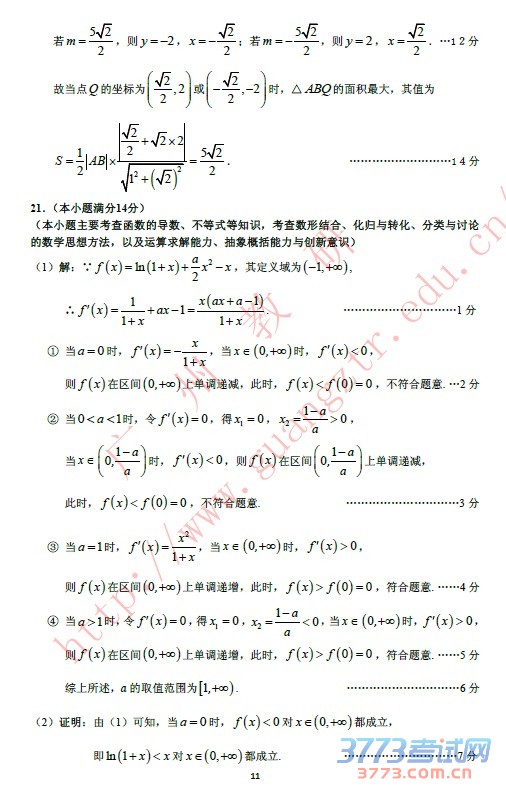 若 m = 5√2/2，则 y = −2，x = −√2/2；若 m = −5√2/2，则 y = 2，x = √2/2．…12分
故当点Q的坐标为(√2/2, 2)或(−√2/2, −2)时，△ABQ的面积最大，其值为
S = 1/2 |AB| × |√2/2 + √2×2| / √(1² + (√2)²) = 5√2/2．…………………………14分
21．（本小题满分14分）
（本小题主要考查函数的导数、不等式等知识，考查数形结合、化归与转化、分类与讨论
的数学思想方法，以及运算求解能力、抽象概括能力与创新意识）
（1）解：∵ f(x) = ln(1+x) + a/2 x² − x，其定义域为(−1, +∞)，
∴ f′(x) = 1/(1+x) + ax − 1 = x(ax+a−1)/(1+x)．……………………………1分
① 当 a = 0 时，f′(x) = −x/(1+x)，当 x ∈ (0, +∞) 时，f′(x) < 0，
则 f(x) 在区间 (0, +∞) 上单调递减，此时，f(x) < f(0) = 0，不符合题意．…2分
② 当 0 < a < 1 时，令 f′(x) = 0，得 x₁ = 0，x₂ = (1−a)/a > 0，
当 x ∈ (0, (1−a)/a) 时，f′(x) < 0，则 f(x) 在区间 (0, (1−a)/a) 上单调递减，
此时，f(x) < f(0) = 0，不符合题意．……………………………3分
③ 当 a = 1 时，f′(x) = x²/(1+x)，当 x ∈ (0, +∞) 时，f′(x) > 0，
则 f(x) 在区间 (0, +∞) 上单调递增，此时，f(x) > f(0) = 0，符合题意．……4分
④ 当 a > 1 时，令 f′(x) = 0，得 x₁ = 0，x₂ = (1−a)/a < 0，当 x ∈ (0, +∞) 时，f′(x) > 0，
则 f(x) 在区间 (0, +∞) 上单调递增，此时，f(x) > f(0) = 0，符合题意．……5分
综上所述，a 的取值范围为 [1, +∞)．……………………………6分
（2）证明：由（1）可知，当 a = 0 时，f(x) < 0 对 x ∈ (0, +∞) 都成立，
即 ln(1+x) < x 对 x ∈ (0, +∞) 都成立．……………………………7分
11
广州教研
http://www.guangztr.edu.cn/
3773考试网
3773.com.cn